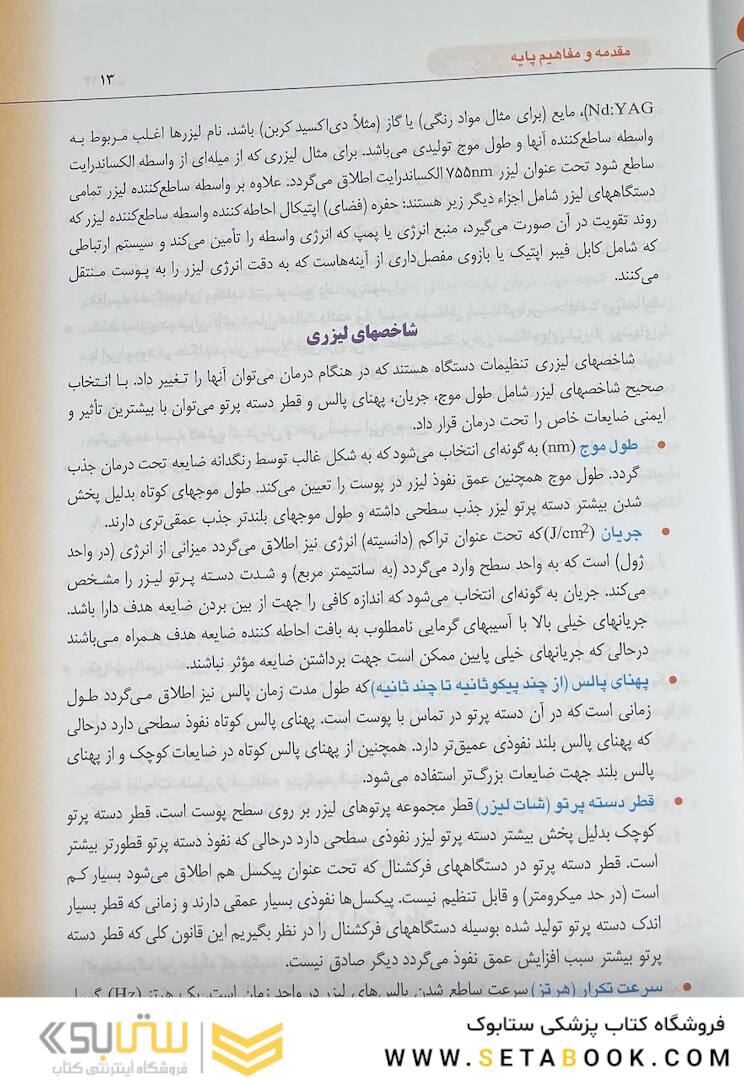 مقدمه و مفاهیم پایه
۱۳
Nd:YAG)، مایع (برای مثال مواد رنگی) یا گاز (مثلاً دی‌اکسید کربن) باشد. نام لیزرها اغلب مربوط به
واسطه ساطع‌کننده آنها و طول موج تولیدی می‌باشد. برای مثال لیزری که از میله‌ای از واسطه الکساندرایت
ساطع شود تحت عنوان لیزر ۷۵۵nm الکساندرایت اطلاق می‌گردد. علاوه بر واسطه ساطع‌کننده لیزر تمامی
دستگاههای لیزر شامل اجزاء دیگر زیر هستند: حفره (فضای) اپتیکال احاطه کننده واسطه ساطع‌کننده لیزر که
روند تقویت در آن صورت می‌گیرد، منبع انرژی یا پمپ که انرژی واسطه را تأمین می‌کند و سیستم ارتباطی
که شامل کابل فیبر اپتیک یا بازوی مفصل‌داری از آینه‌هاست که به دقت انرژی لیزر را به پوست منتقل
می‌کنند.
شاخصهای لیزری
شاخصهای لیزری تنظیمات دستگاه هستند که در هنگام درمان می‌توان آنها را تغییر داد. با انتخاب
صحیح شاخصهای لیزر شامل طول موج، جریان، پهنای پالس و قطر دسته پرتو می‌توان با بیشترین تأثیر و
ایمنی ضایعات خاص را تحت درمان قرار داد.
• طول موج (nm) به گونه‌ای انتخاب می‌شود که به شکل غالب توسط رنگدانه ضایعه تحت درمان جذب
گردد. طول موج همچنین عمق نفوذ لیزر در پوست را تعیین می‌کند. طول موجهای کوتاه بدلیل پخش
شدن بیشتر دسته پرتو لیزر جذب سطحی داشته و طول موجهای بلندتر جذب عمقی‌تری دارند.
• جریان (J/cm²) که تحت عنوان تراکم (دانسیته) انرژی نیز اطلاق می‌گردد میزانی از انرژی (در واحد
ژول) است که به واحد سطح وارد می‌گردد (به سانتیمتر مربع) و شدت دسته پرتو لیزر را مشخص
می‌کند. جریان به گونه‌ای انتخاب می‌شود که اندازه کافی را جهت از بین بردن ضایعه هدف دارا باشد.
جریانهای خیلی بالا با آسیبهای گرمایی نامطلوب به بافت احاطه کننده ضایعه هدف همراه می‌باشند
درحالی که جریانهای خیلی پایین ممکن است جهت برداشتن ضایعه مؤثر نباشند.
• پهنای پالس (از چند پیکوثانیه تا چند ثانیه) که طول مدت زمان پالس نیز اطلاق می‌گردد طول
زمانی است که در آن دسته پرتو در تماس با پوست است. پهنای پالس کوتاه نفوذ سطحی دارد درحالی
که پهنای پالس بلند نفوذی عمیق‌تر دارد. همچنین از پهنای پالس کوتاه در ضایعات کوچک و از پهنای
پالس بلند جهت ضایعات بزرگ‌تر استفاده می‌شود.
• قطر دسته پرتو (شات لیزر) قطر مجموعه پرتوهای لیزر بر روی سطح پوست است. قطر دسته پرتو
کوچک بدلیل پخش بیشتر دسته پرتو لیزر نفوذی سطحی دارد درحالی که نفوذ دسته پرتو قطورتر بیشتر
است. قطر دسته پرتو در دستگاههای فرکشنال که تحت عنوان پیکسل هم اطلاق می‌شود بسیار کم
است (در حد میکرومتر) و قابل تنظیم نیست. پیکسل‌ها نفوذی بسیار عمقی دارند و زمانی که قطر بسیار
اندک دسته پرتو تولید شده بوسیله دستگاههای فرکشنال را در نظر بگیریم این قانون کلی که قطر دسته
پرتو بیشتر سبب افزایش عمق نفوذ می‌گردد دیگر صادق نیست.
• سرعت تکرار (هرتز) سرعت ساطع شدن پالس‌های لیزر در واحد زمان است. یک هرتز (Hz)
فروشگاه کتاب پزشکی ستابوک
WWW.SETABOOK.COM
ستابوک
فروشگاه اینترنتی کتاب